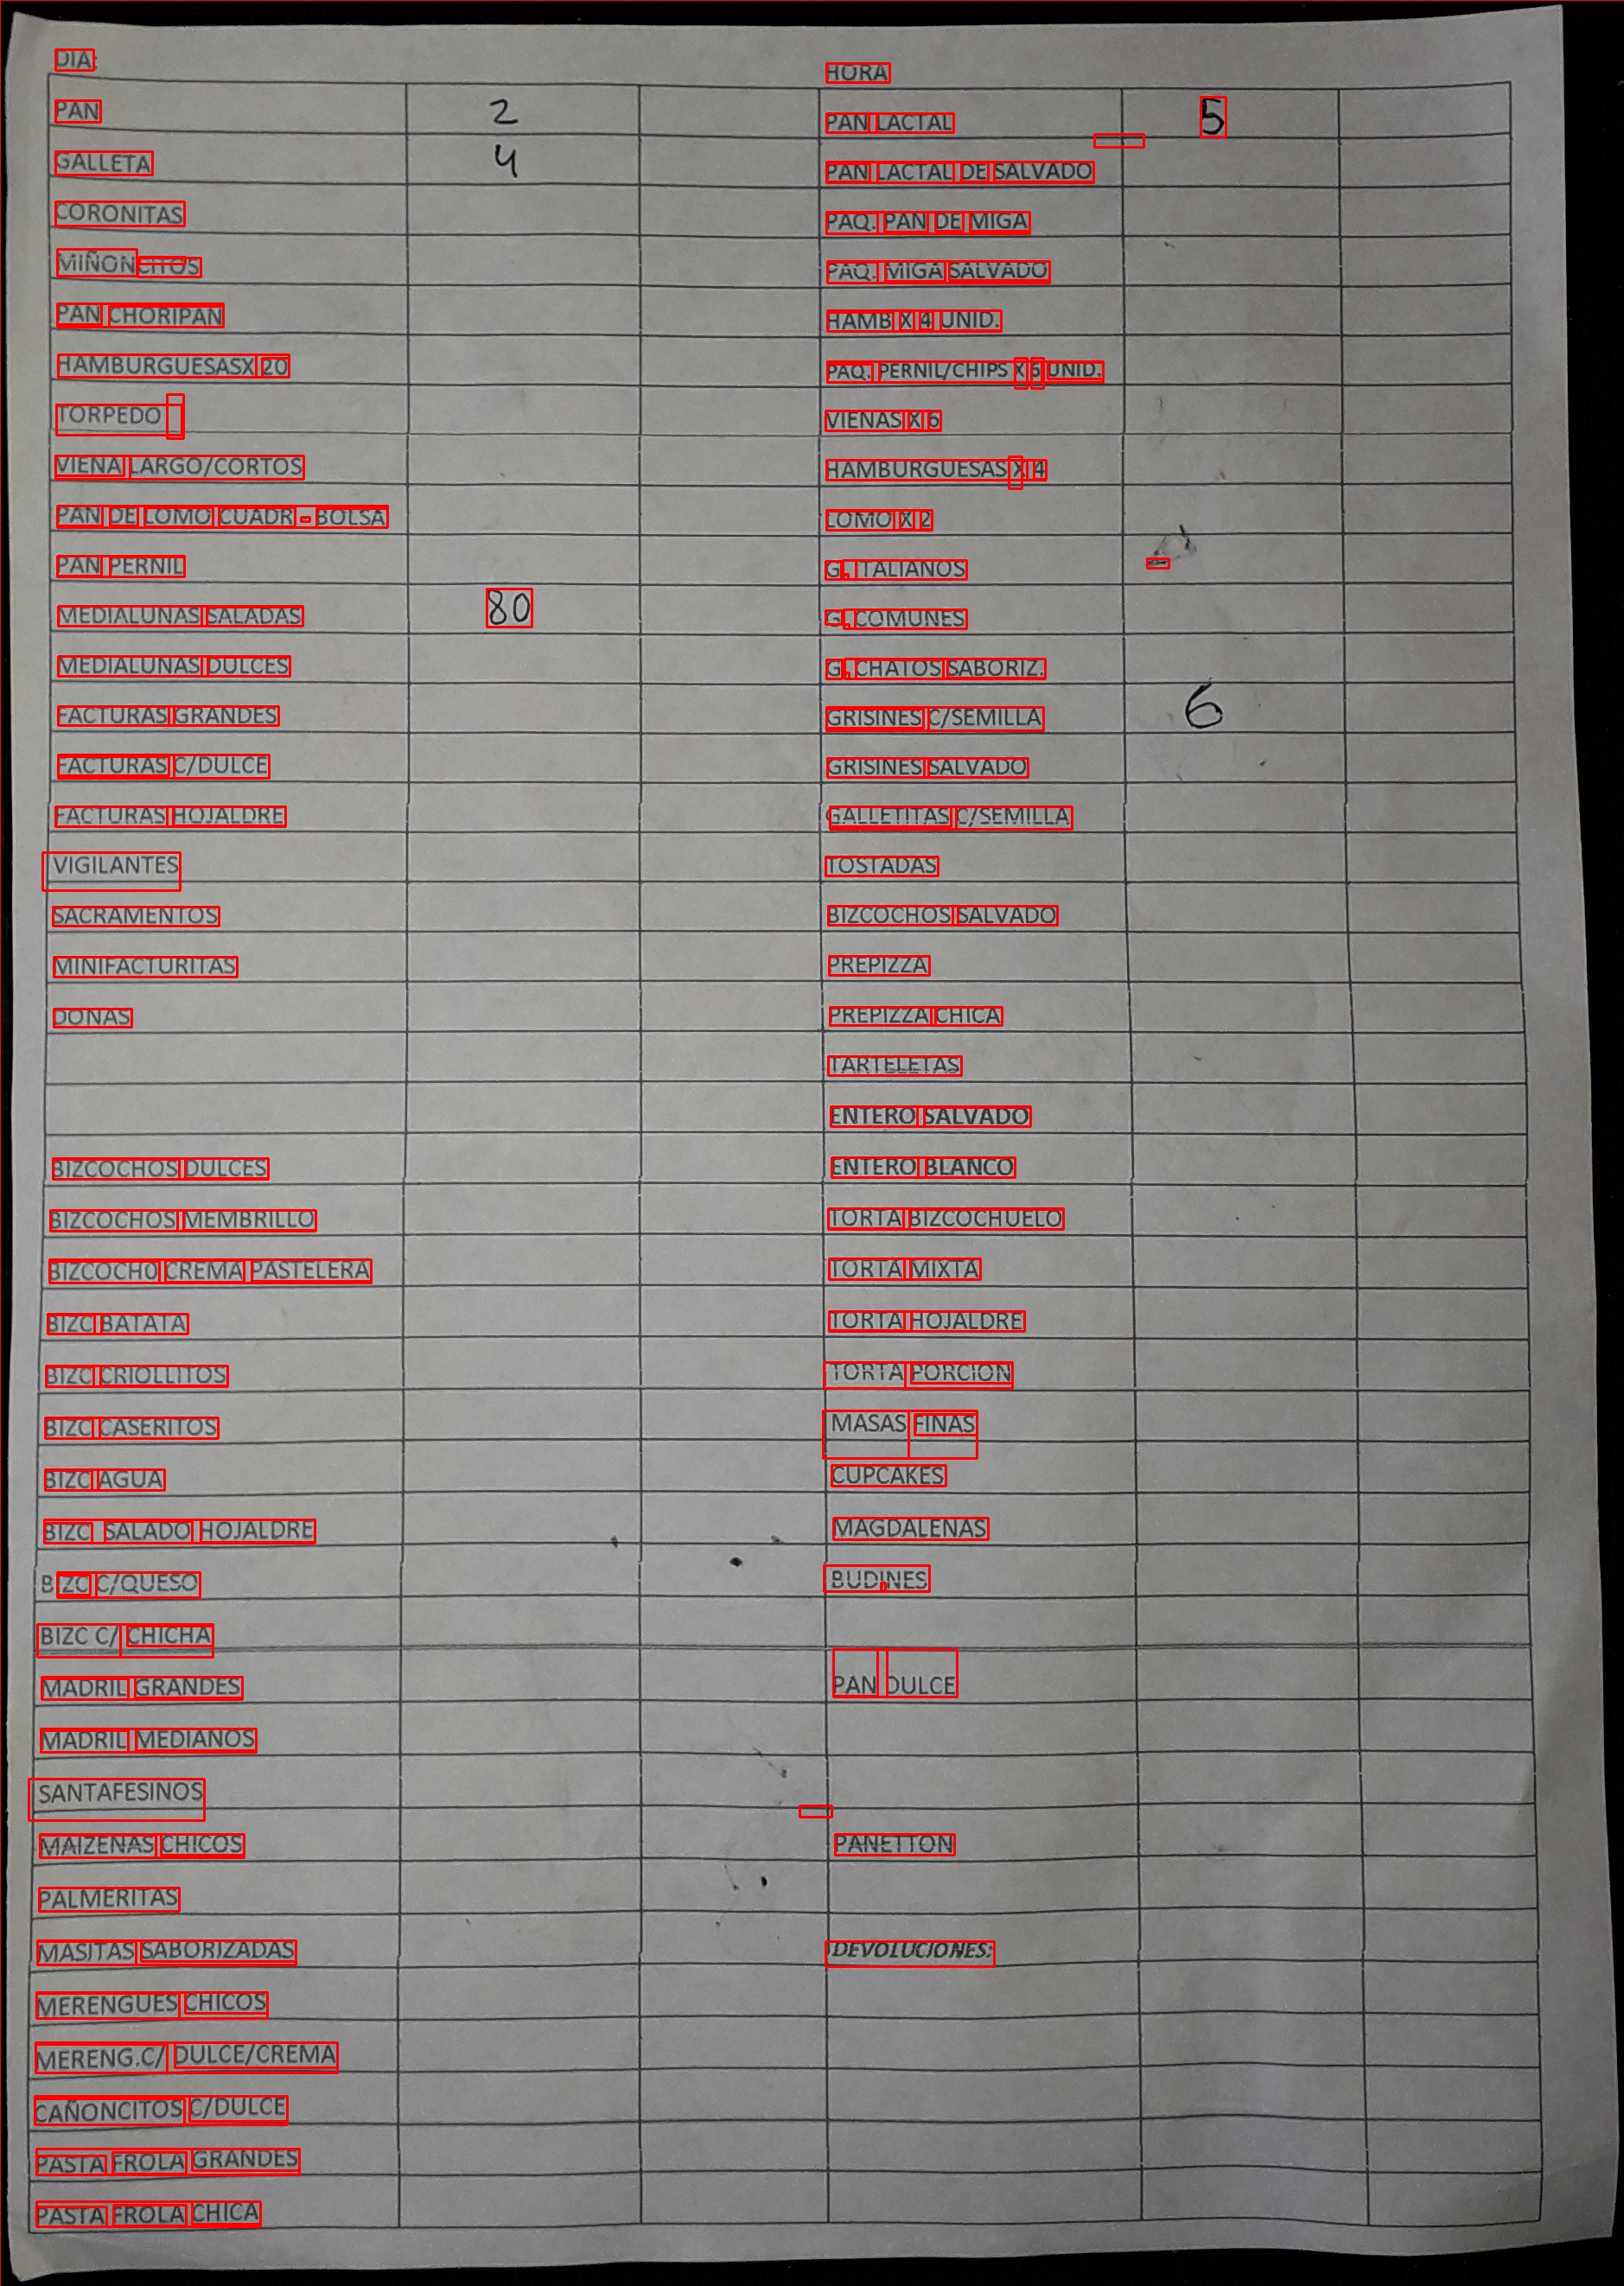 DIA:
HORA
PAN 2 PAN LACTAL 5
GALLETA 4 PAN LACTAL DE SALVADO
CORONITAS PAQ. PAN DE MIGA
MIÑONCITOS PAQ. MIGA SALVADO
PAN CHORIPAN HAMB X 4 UNID.
HAMBURGUESASX 20 PAQ. PERNIL/CHIPS X 6 UNID.
TORPEDO VIENAS X 6
VIENA LARGO/CORTOS HAMBURGUESAS X 4
PAN DE LOMO CUADR - BOLSA LOMO X 2
PAN PERNIL G. ITALIANOS
MEDIALUNAS SALADAS 80 G. COMUNES
MEDIALUNAS DULCES G. CHATOS SABORIZ.
FACTURAS GRANDES GRISINES C/SEMILLA 6
FACTURAS C/DULCE GRISINES SALVADO
FACTURAS HOJALDRE GALLETITAS C/SEMILLA
VIGILANTES TOSTADAS
SACRAMENTOS BIZCOCHOS SALVADO
MINIFACTURITAS PREPIZZA
DONAS PREPIZZA CHICA
TARTELETAS
ENTERO SALVADO
BIZCOCHOS DULCES ENTERO BLANCO
BIZCOCHOS MEMBRILLO TORTA BIZCOCHUELO
BIZCOCHO CREMA PASTELERA TORTA MIXTA
BIZC BATATA TORTA HOJALDRE
BIZC CRIOLLITOS TORTA PORCION
BIZC CASERITOS MASAS FINAS
BIZC AGUA CUPCAKES
BIZC SALADO HOJALDRE MAGDALENAS
BIZC C/QUESO BUDINES
BIZC C/ CHICHA
MADRIL GRANDES PAN DULCE
MADRIL MEDIANOS
SANTAFESINOS
MAIZENAS CHICOS PANETTON
PALMERITAS
MASITAS SABORIZADAS DEVOLUCIONES:
MERENGUES CHICOS
MERENG.C/ DULCE/CREMA
CAÑONCITOS C/DULCE
PASTA FROLA GRANDES
PASTA FROLA CHICA